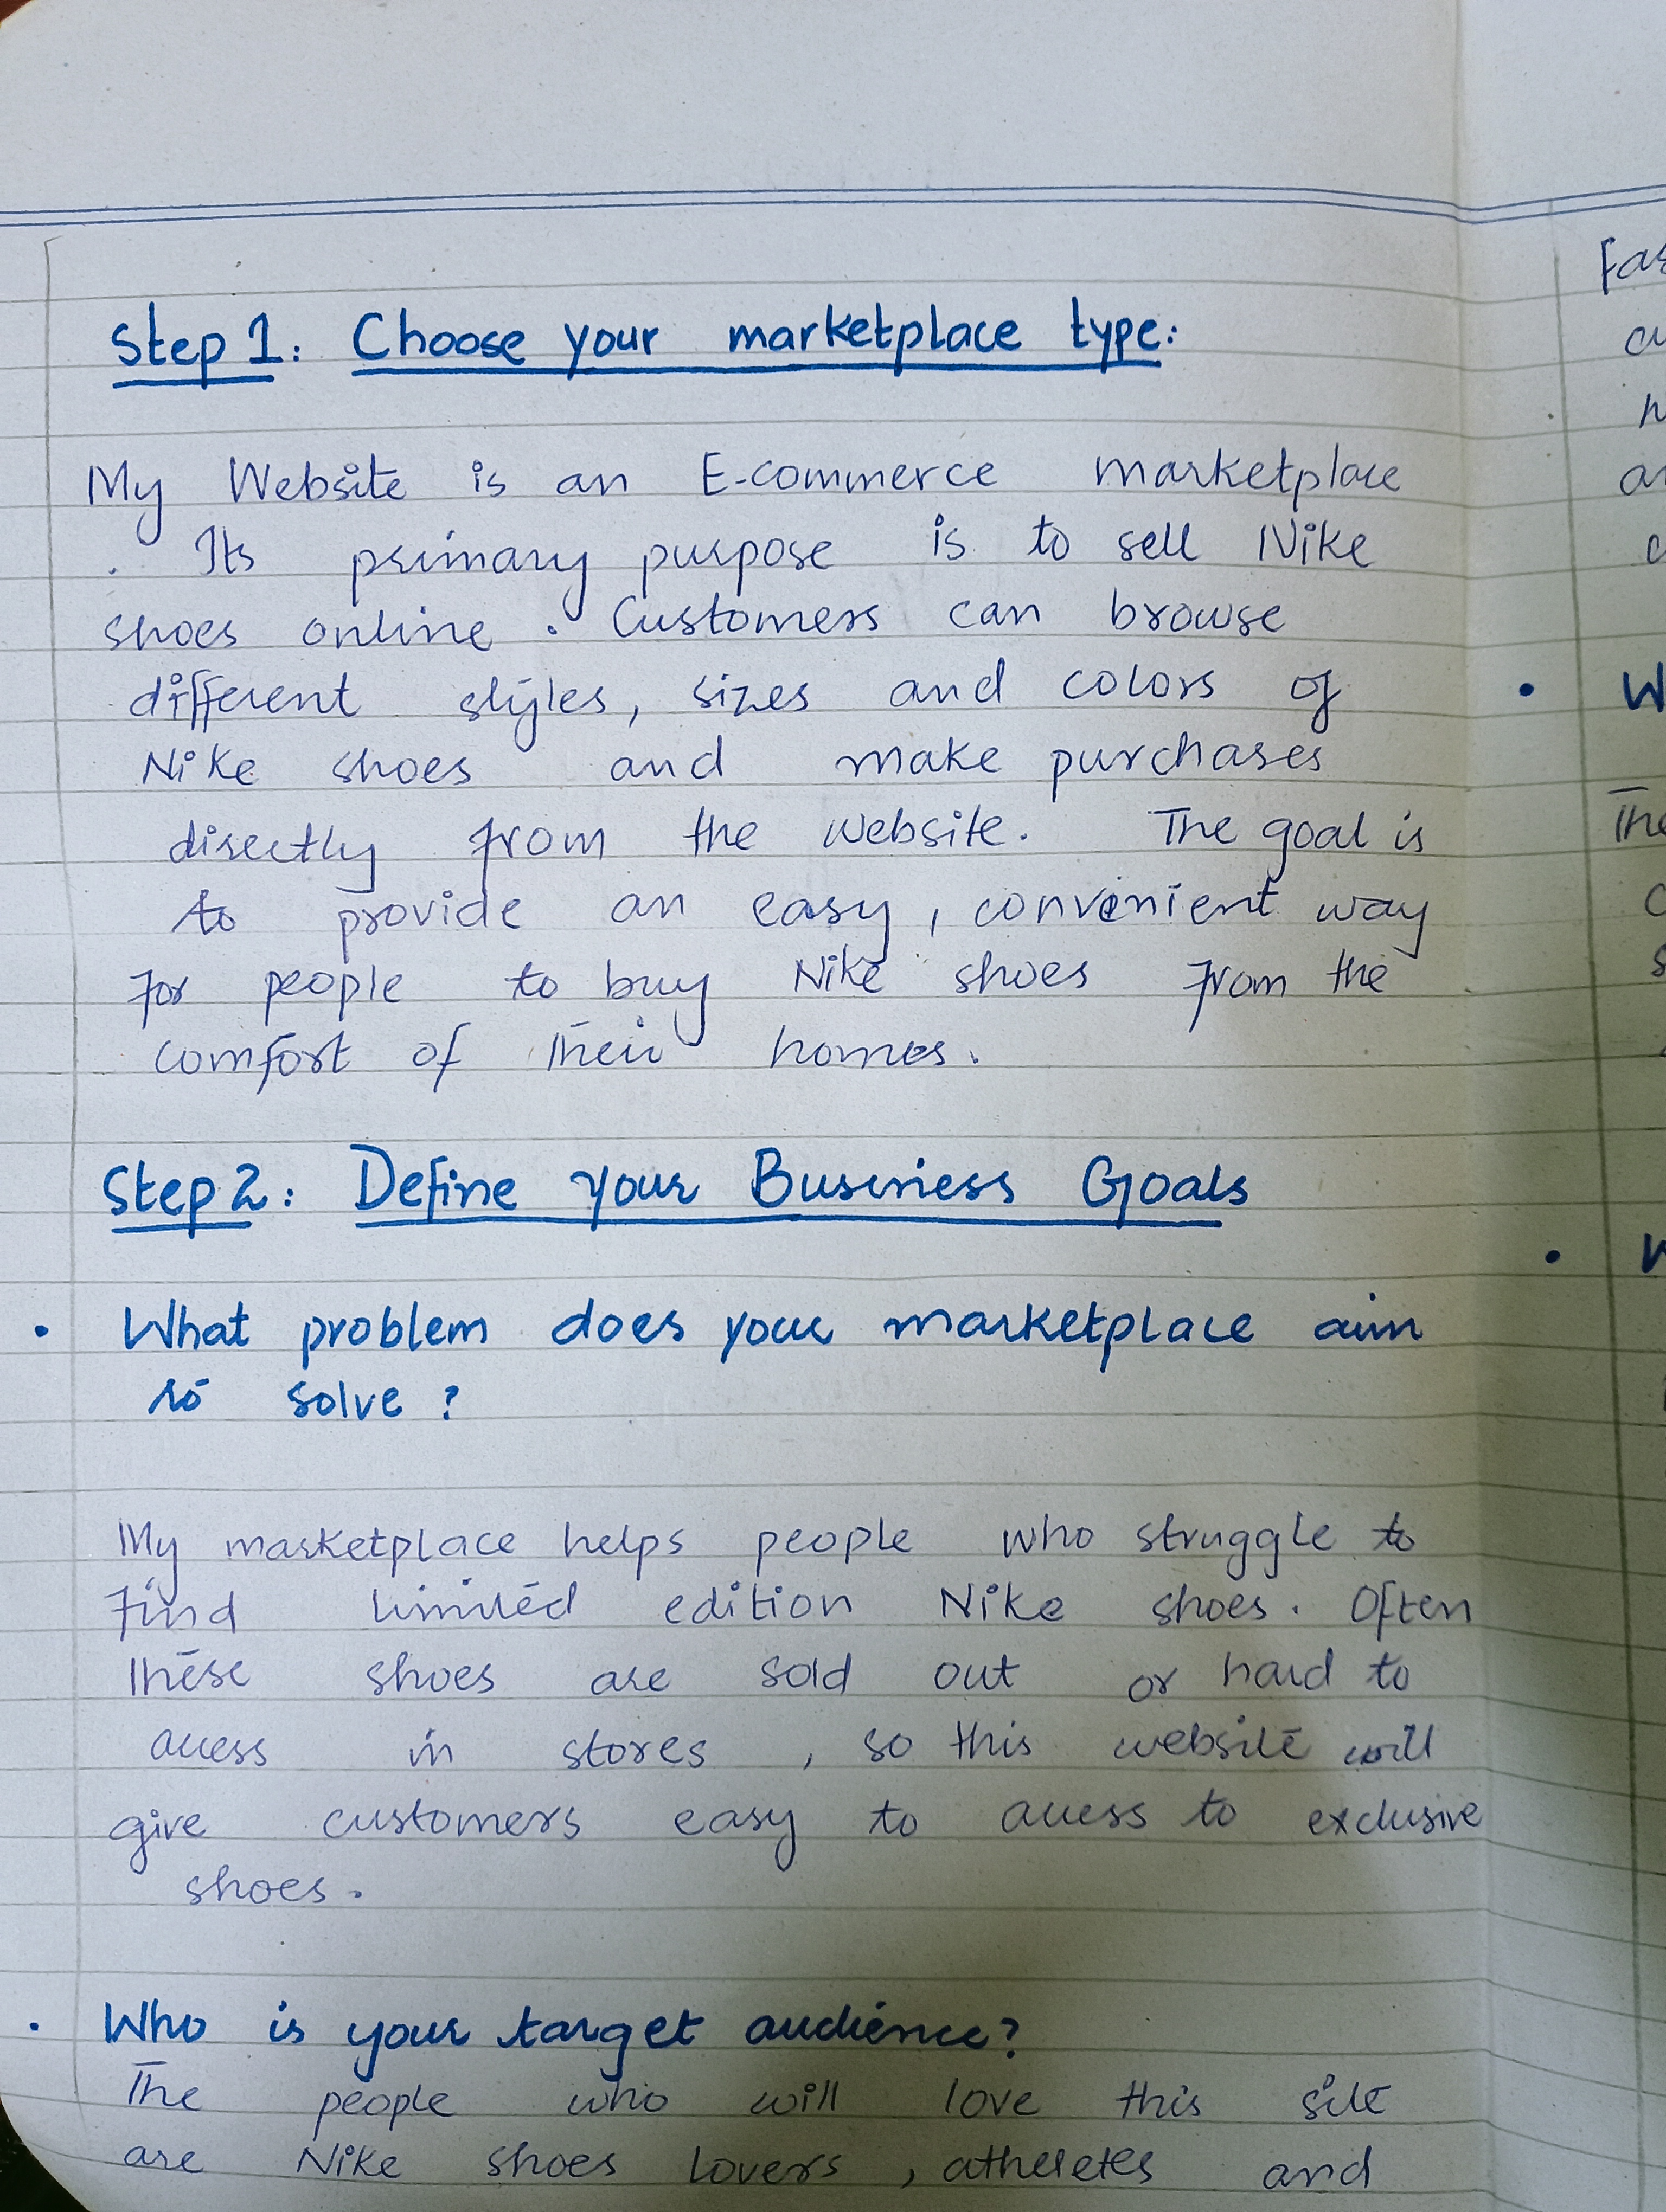 Step 1: Choose your marketplace type:
My Website is an E-commerce marketplace
. Its primary purpose is to sell Nike
shoes online. Customers can browse
different styles, sizes and colors of
Nike shoes and make purchases
directly from the website. The goal is
to provide an easy, convenient way
for people to buy Nike shoes from the
comfort of their homes.
Step 2: Define your Business Goals
• What problem does your marketplace aim
to solve?
My marketplace helps people who struggle to
find limited edition Nike shoes. Often
these shoes are sold out or hard to
access in stores, so this website will
give customers easy to access to exclusive
shoes.
• Who is your target audience?
The people who will love this site
are Nike shoes lovers, atheletes and